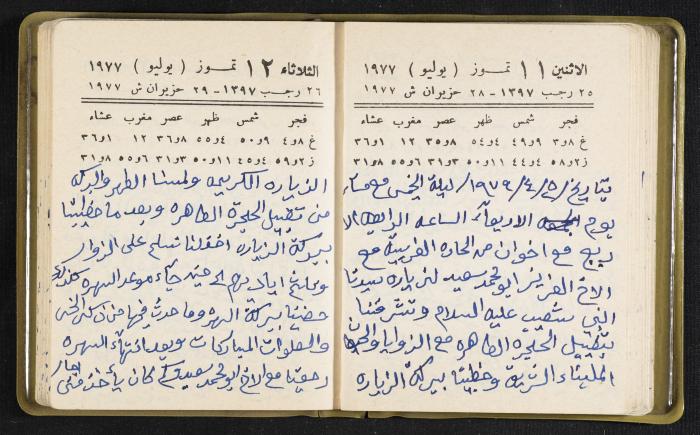 الاثنين ١١ تموز ( يوليو ) ١٩٧٧
٢٥ رجب ١٣٩٧ - ٢٨ حزيران ش ١٩٧٧
فجر شمس ظهر عصر مغرب عشاء
غ ٨و٣ ٩و٤٩ ٤و٥٤ ٨و٣٥ ١٢ ١و٣٦
ز ٢و٥٨ ٤و٤٤ ١١و٥٠ ٣و٣١ ٦و٥٥ ٨و٣١
بتاريخ ٥/٤/١٩٧٩/ ليلة الخميس مع مساء
يوم الاربعاء الساعه الرابعه الا
ربع مع اخوان من الحاره الغربية مع
الاخ العزيز ابو محمد سعيد لزيارة سيدنا
النبي شعيب عليه السلام وتشرفنا
بتقبيل الحجرة الطاهره مع الزوايا
الشريفه وحظينا ببركة الزياره
الثلاثاء ١٢ تموز ( يوليو ) ١٩٧٧
٢٦ رجب ١٣٩٧ - ٢٩ حزيران ش ١٩٧٧
فجر شمس ظهر عصر مغرب عشاء
غ ٨و٤ ٩و٥٠ ٤و٥٥ ٨و٣٦ ١٢ ١و٣٦
ز ٢و٥٩ ٤و٤٥ ١١و٥٠ ٣و٣١ ٦و٥٥ ٨و٣١
الزياره الكريمه ولمسنا الطهر والبركه
من تقبيل الحجرة الطاهره وبعد ما حظينا
ببركة الزياره اخذنا نسلم على الزوار
الى حين جاء موعد السهره
حضينا ببركة السهره وما حدث فيها من
والصلوات المباركات وبعد انتهاء السهره
مع الاخ ابو محمد سعيد كان يأخذ